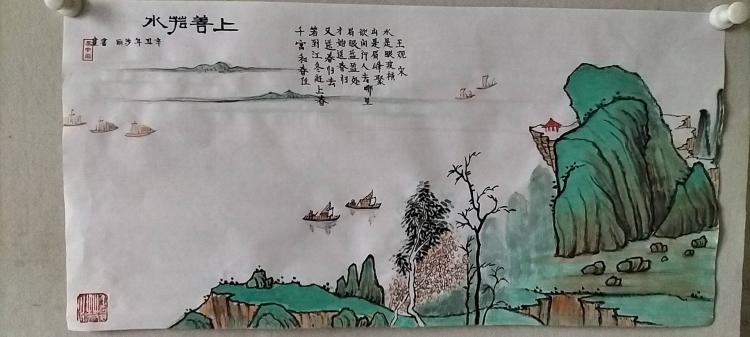 上善若水
王观 宋
水是眼波横
山是眉峰聚
欲问行人去哪里
眉眼盈盈处
才始送春归
又送春归去
若到江冬赶上春
千萬和春住
辛丑年